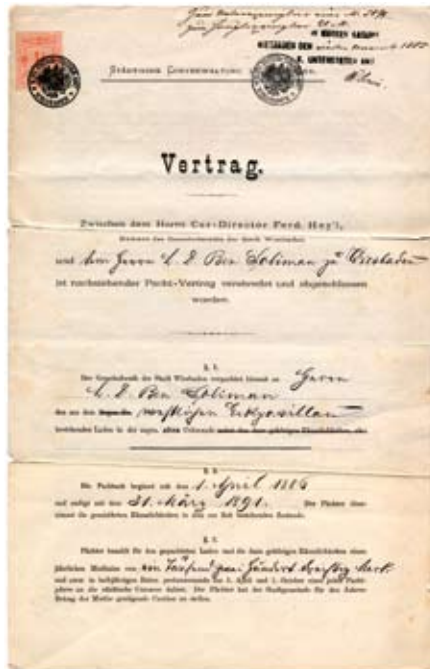 Zum Hauptexemplar
den
1885
Städtische Curverwaltung
Vertrag.
Zwischen dem Herrn Cur-Director Ferd. Hey'l,
Namens des Gemeinderaths der Stadt Wiesbaden
und dem Herrn L. D. Ben Soliman zu Wiesbaden
ist nachstehender Pacht-Vertrag verabredet und abgeschlossen
worden.
§ 1.
Der Gemeinderath der Stadt Wiesbaden verpachtet hiermit an Herrn
L. D. Ben Soliman
den aus dem westlichen Eckpavillon
bestehenden Laden in der sogen. alten Colonnade
§ 2.
Die Pachtzeit beginnt mit dem 1. April 1886
und endigt mit dem 31. März 1891. Der Pächter über-
nimmt die gemietheten Räumlichkeiten in dem zur Zeit bestehenden Zustande.
§ 3.
Pächter bezahlt für den gepachteten Laden und die dazu gehörigen Räumlichkeiten einen
jährlichen Miethzins von ein Tausend zwei Hundert dreißig Mark
und zwar in halbjährigen Raten, pränumerando den 1. April und 1. October eines jeden Pacht-
jahres an die städtische Curcasse dahier. Der Pächter hat der Stadtgemeinde für den Jahres-
Betrag der Miethe genügende Caution zu stellen.